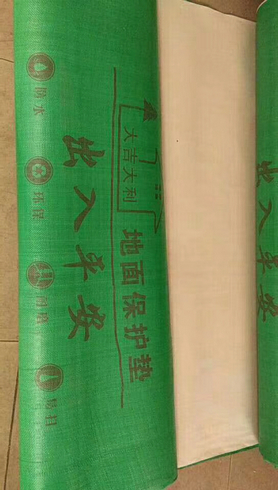 大吉大利
出入平安
地面保护垫
防水
环保
耐磨
易扫
出入平安